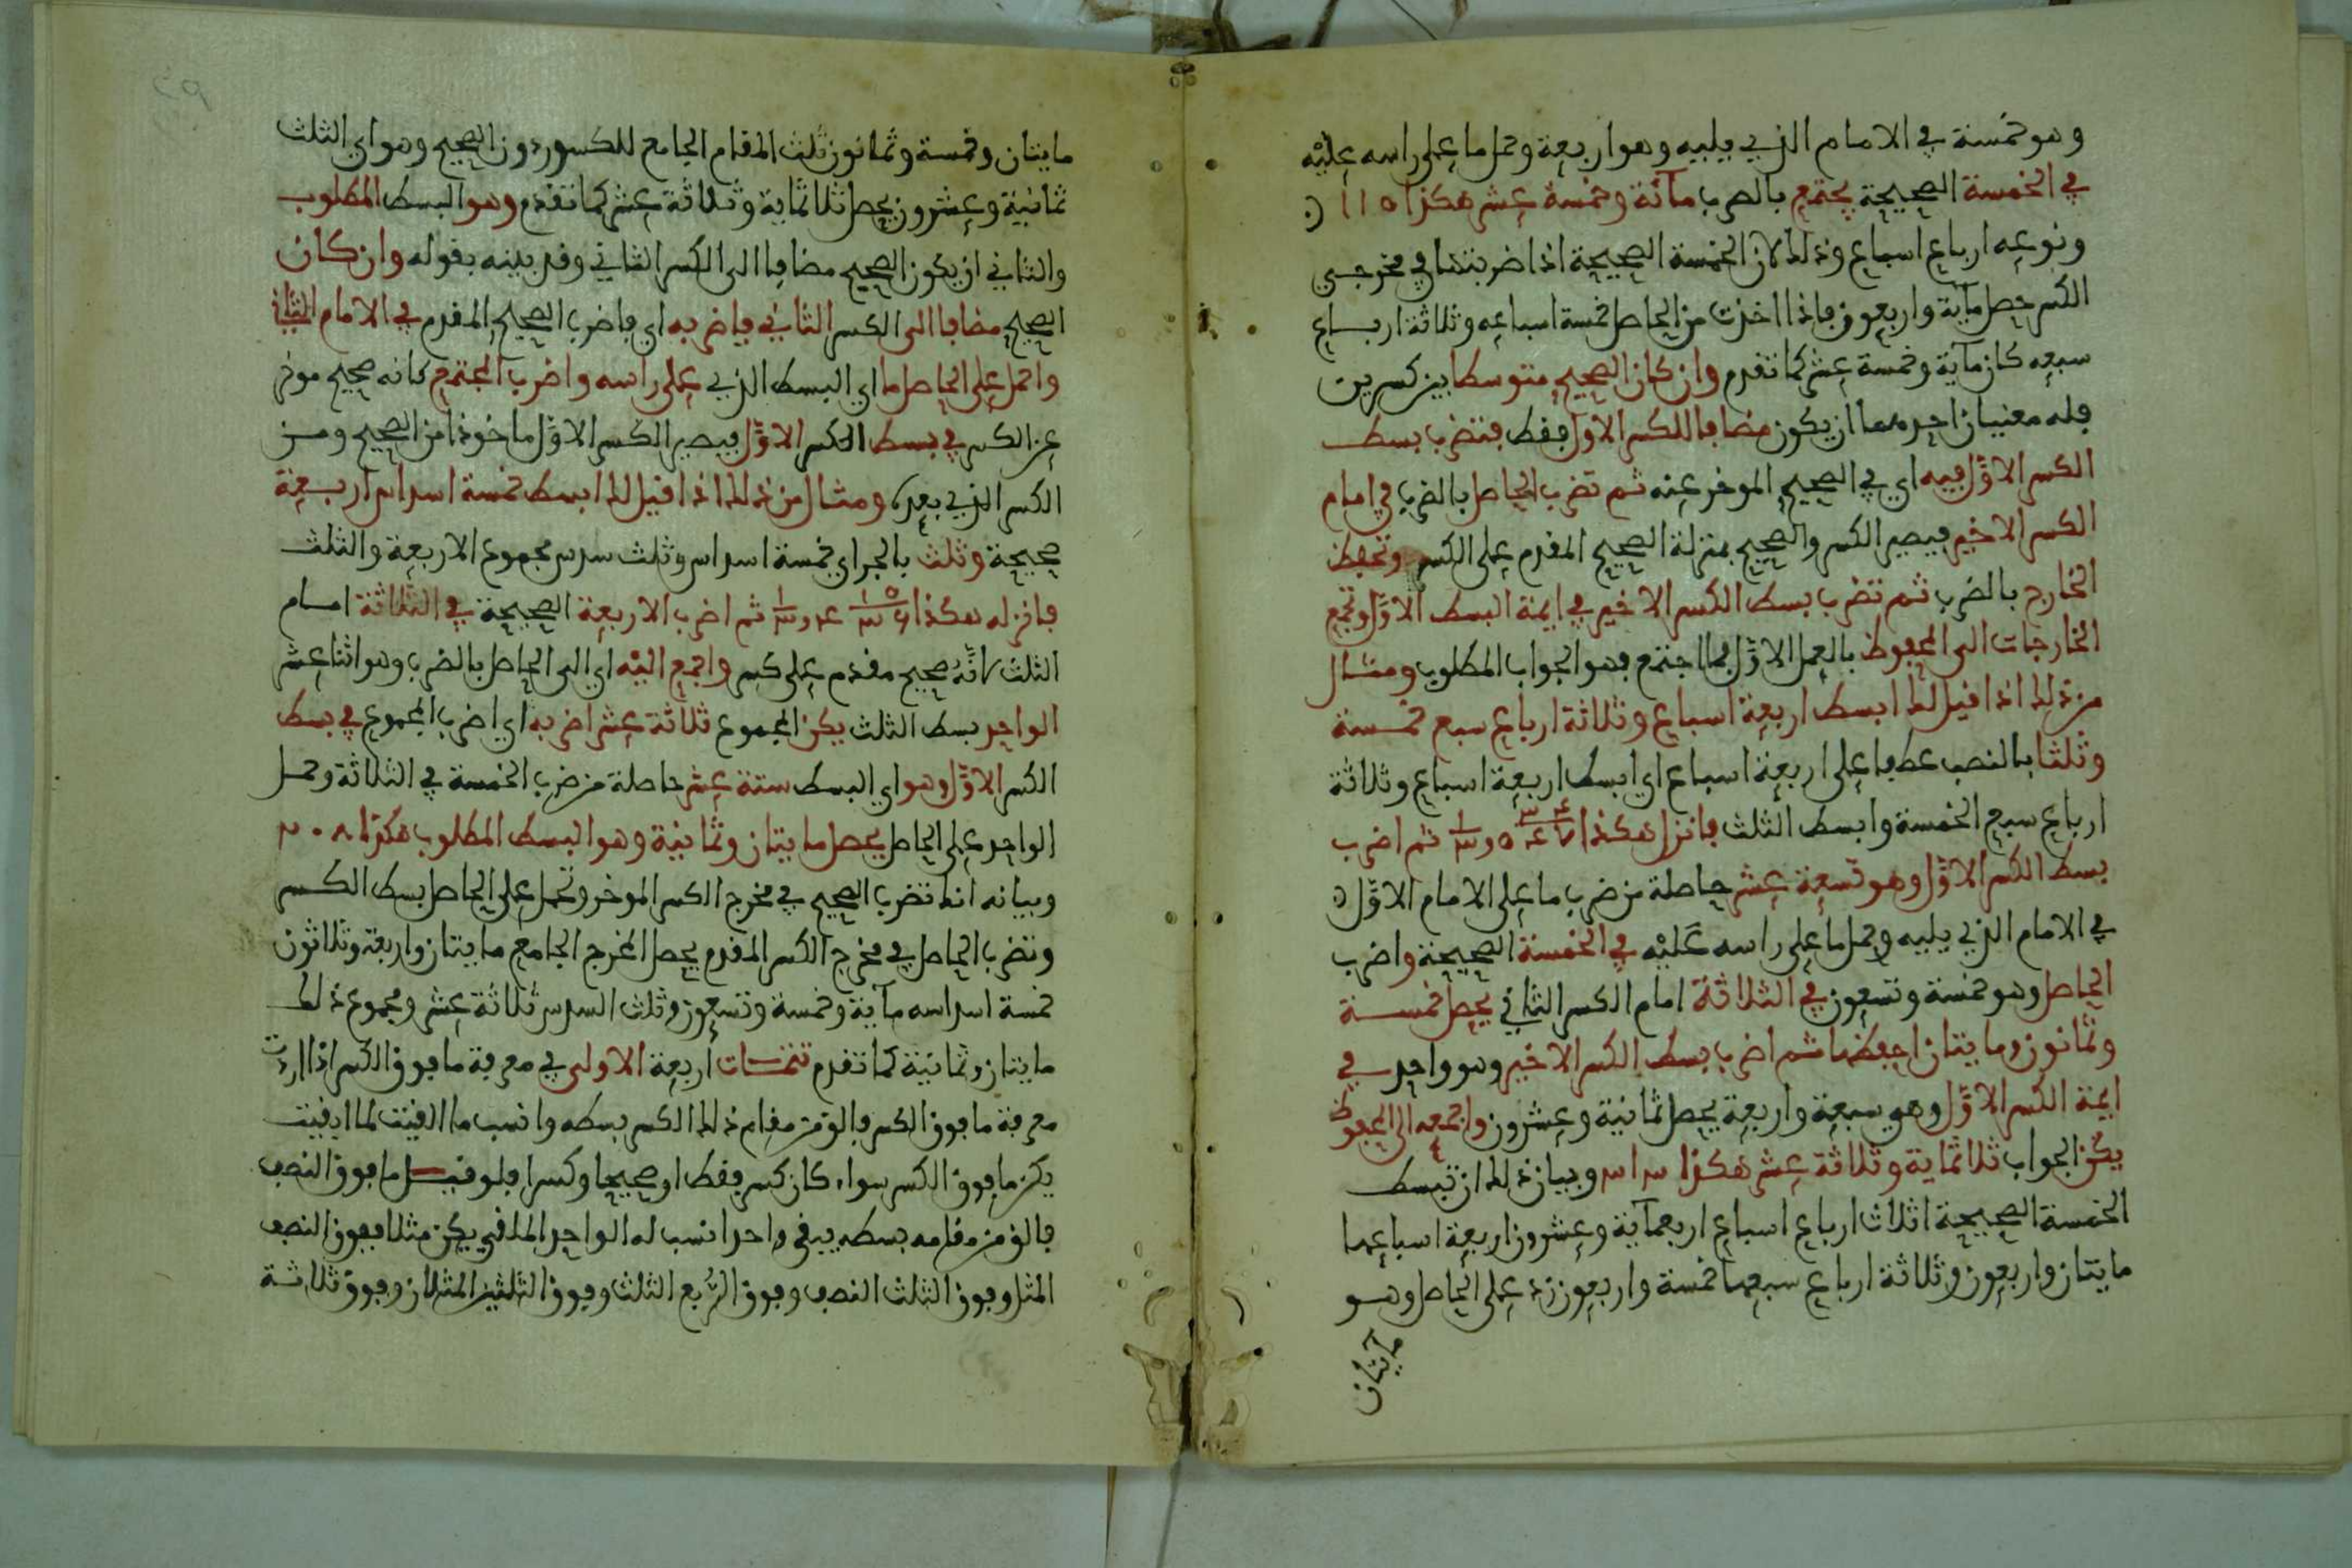 وهو خمسة في الامام الذي يليه وهو اربعة وحمل ما على راسه عليه
في الخمسة الصحيحة يجتمع بالضرب مائة وخمسة عشر هكذا ١١٥
ونوعه ارباع اسباع وذلك لان الخمسة الصحيحة اذا ضربتها في مخرجي
الكسر حصل مائة واربعون فاذا اخذت من الحاصل خمسة اسباعه وثلاثة ارباع
سبعه كان مائة وخمسة عشر كما تقدم وان كان الصحيح متوسطا بين كسرين
فله معنيان احدهما ان يكون مضافا للكسر الاول فقط فتضرب بسط
الكسر الاول فيه اي في الصحيح الموخر عنه ثم تضرب الحاصل بالضرب في امام
الكسر الاخير فيصير الكسر والصحيح بمنزلة الصحيح المقدم على الكسر وتحفظ
الخارج بالضرب ثم تضرب بسط الكسر الاخير في ايمة البسط الاول وتجمع
الخارجات الى المحفوظ بالعمل الاول فما اجتمع فهو الجواب المطلوب ومثال
من ذلك اذا قيل لك ابسط اربعة اسباع وثلاثة ارباع سبع خمسة
وثلثا بالنصب عطفا على اربعة اسباع اي ابسط اربعة اسباع وثلاثة
ارباع سبع الخمسة وابسط الثلث فانزل هكذا ٣ ٤ / ٤ ٧ ٥ و ١ / ٣ ثم اضرب
بسط الكسر الاول وهو تسعة عشر حاصلة من ضرب ما على الامام الاول
في الامام الذي يليه وحمل ما على راسه عليه في الخمسة الصحيحة واضرب
الحاصل وهو خمسة وتسعون في الثلاثة امام الكسر الثاني يحصل خمسة
وثمانون ومايتان احفظها ثم اضرب بسط الكسر الاخير وهو واحد في
ايمة الكسر الاول وهي سبعة واربعة يحصل ثمانية وعشرون واجمعه الى المحفوظ
يكن الجواب ثلاثماية وثلاثة عشر هكذا ٣١٣ وبيان ذلك ان تبسط
الخمسة الصحيحة اثلاث ارباع اسباع اربعماية وعشرون اربعة اسباعها
مايتان واربعون وثلاثة ارباع سبعها خمسة واربعون زد على الحاصل وهو
مايتان
مايتان وخمسة وثمانون ثلث المقام الجامع للكسور دون الصحيح وهو اي الثلث
ثمانية وعشرون يحصل ثلاثماية وثلاثة عشر كما تقدم وهو البسط المطلوب
والثاني ان يكون الصحيح مضافا الى الكسر الثاني وقد بينه بقوله وان كان
الصحيح مضافا الى الكسر الثاني فاضربه اي فاضرب الصحيح المقدم في الامام الثاني
واحمل على الحاصل ما اي البسط الذي على راسه واضرب المجتمع كانه صحيح موخر
عن الكسر في بسط الكسر الاول فيصير الكسر الاول ماخوذا من الصحيح ومن
الكسر الذي بعده ومثال من ذلك اذا قيل لك ابسط خمسة اسداس اربعة
صحيحة وثلث بالجر اي خمسة اسداس وثلث سدس مجموع الاربعة والثلث
فانزله هكذا ١ ٥ / ٣ ٦ ٤ و ١ / ٣ ثم اضرب الاربعة الصحيحة في الثلاثة امام
الثلث لانه صحيح مقدم على كسر واجمع اليه اي الى الحاصل بالضرب وهو اثنا عشر
الواحد بسط الثلث يكن المجموع ثلاثة عشر اضربه اي اضرب المجموع في بسط
الكسر الاول وهو اي البسط ستة عشر حاصلة من ضرب الخمسة في الثلاثة وحمل
الواحد على الحاصل يحصل مايتان وثمانية وهو البسط المطلوب هكذا ٢٠٨
وبيانه انك تضرب الصحيح في مخرج الكسر الموخر وتحمل على الحاصل بسط الكسر
وتضرب الحاصل في مخرج الكسر المقدم يحصل المخرج الجامع مايتان واربعة وثلاثون
خمسة اسداسه ماية وخمسة وتسعون وثلث السدس ثلاثة عشر ومجموع ذلك
مايتان وثمانية كما تقدم تتمات اربعة الاولى في معرفة ما فوق الكسر اذا اردت
معرفة ما فوق الكسر فالق من مقام ذلك الكسر بسطه وانسب ما القيت لما ابقيت
يكن ما فوق الكسر سواء كان كسر فقط او صحيحا وكسرا فلو قيل ما فوق النصف
فالق من مقامه بسطه يبقى واحدا نسب له الواحد الملقي يكن مثلا ففوق النصف
المثل وفوق الثلث النصف وفوق الربع الثلث وفوق الثلثين المثلان وفوق ثلاثة